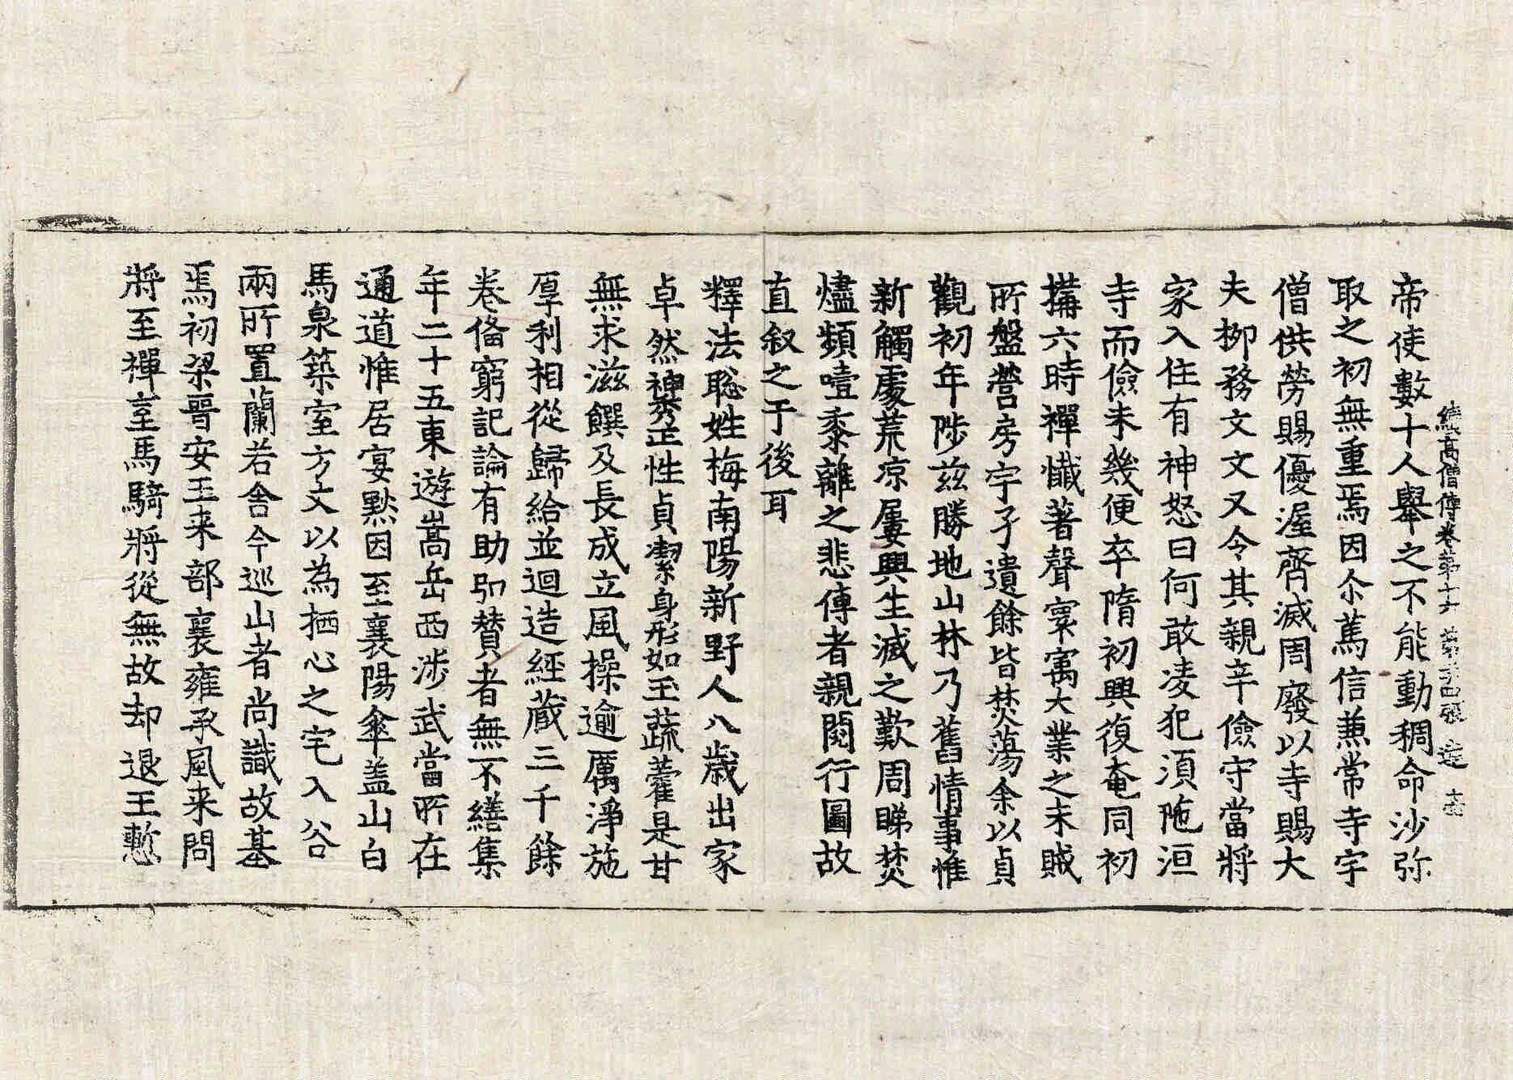 續高僧傳卷第十六 第二十四張 達
帝使數十人舉之不能動稠命沙弥
取之初無重焉因尒篤信兼常寺宇
僧供勞賜優渥齊滅周廢以寺賜大
夫柳務文文又令其親辛儉守當將
家入住有神怒曰何敢凌犯須陁洹
寺而儉未幾便卒隋初興復奄同初
搆六時禪懺著聲寰寓大業之末賊
所盤營房宇孑遺餘皆焚蕩余以貞
觀初年陟茲勝地山林乃舊情事惟
新觸處荒凉屢興生滅之歎周睇焚
燼頻噎黍離之悲傳者親閱行圖故
直叙之于後耳
釋法聡姓梅南陽新野人八歲出家
卓然神秀正性貞潔身形如玉蔬藿是甘
無求滋饌及長成立風操逾厲淨施
厚利相從歸給並迴造經藏三千餘
卷俻窮記論有助弘贊者無不繕集
年二十五東遊嵩岳西涉武當所在
通道惟居宴默因至襄陽傘盖山白
馬泉築室方丈以為栖心之宅入谷
兩所置蘭若舍今巡山者尚識故基
焉初梁晉安王来部襄雍承風来問
將至禪室馬騎將從無故却退王慙